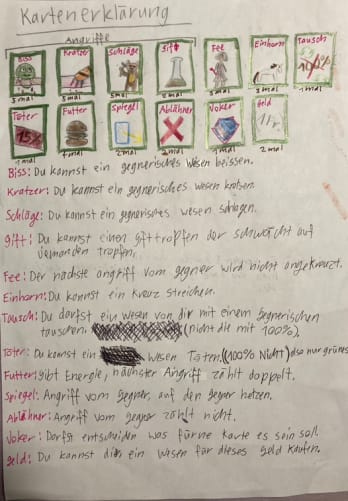 Kartenerklärung
Angriffe
Biss Kratzer Schläge Gift Fee Einhorn Tausch
3mal 3mal 2mal 1mal
Töter Futter Spiegel Ablähner Joker Geld
15% 1mal 2mal 2mal 1mal 2mal
Biss: Du kannst ein gegnerisches wesen beissen.
Kratzer: Du kannst ein gegnerisches wesen kratzen.
Schläge: Du kannst ein gegnerisches wesen schlagen.
Gift: Du kannst einen gifttropfen der schwächt auf
jemanden tropfen.
Fee: Der nächste angriff vom gegner wird nicht angekreuzt.
Einhorn: Du kannst ein Kreuz streichen.
Tausch: Du darfst ein wesen von dir mit einem gegnerischen
tauschen. (nicht die mit 100%).
Töter: Du kannst ein wesen Töten. (100% Nicht) also nur grünes
Futter: gibt Energie, nächster Angriff zählt doppelt.
Spiegel: Angriff vom gegner, auf den gegner hetzen.
Ablähner: Angriff vom gegner zählt nicht.
Joker: Darfst entscheiden was fürne Karte es sein soll.
Geld: Du kannst dir ein wesen für dieses geld kaufen.